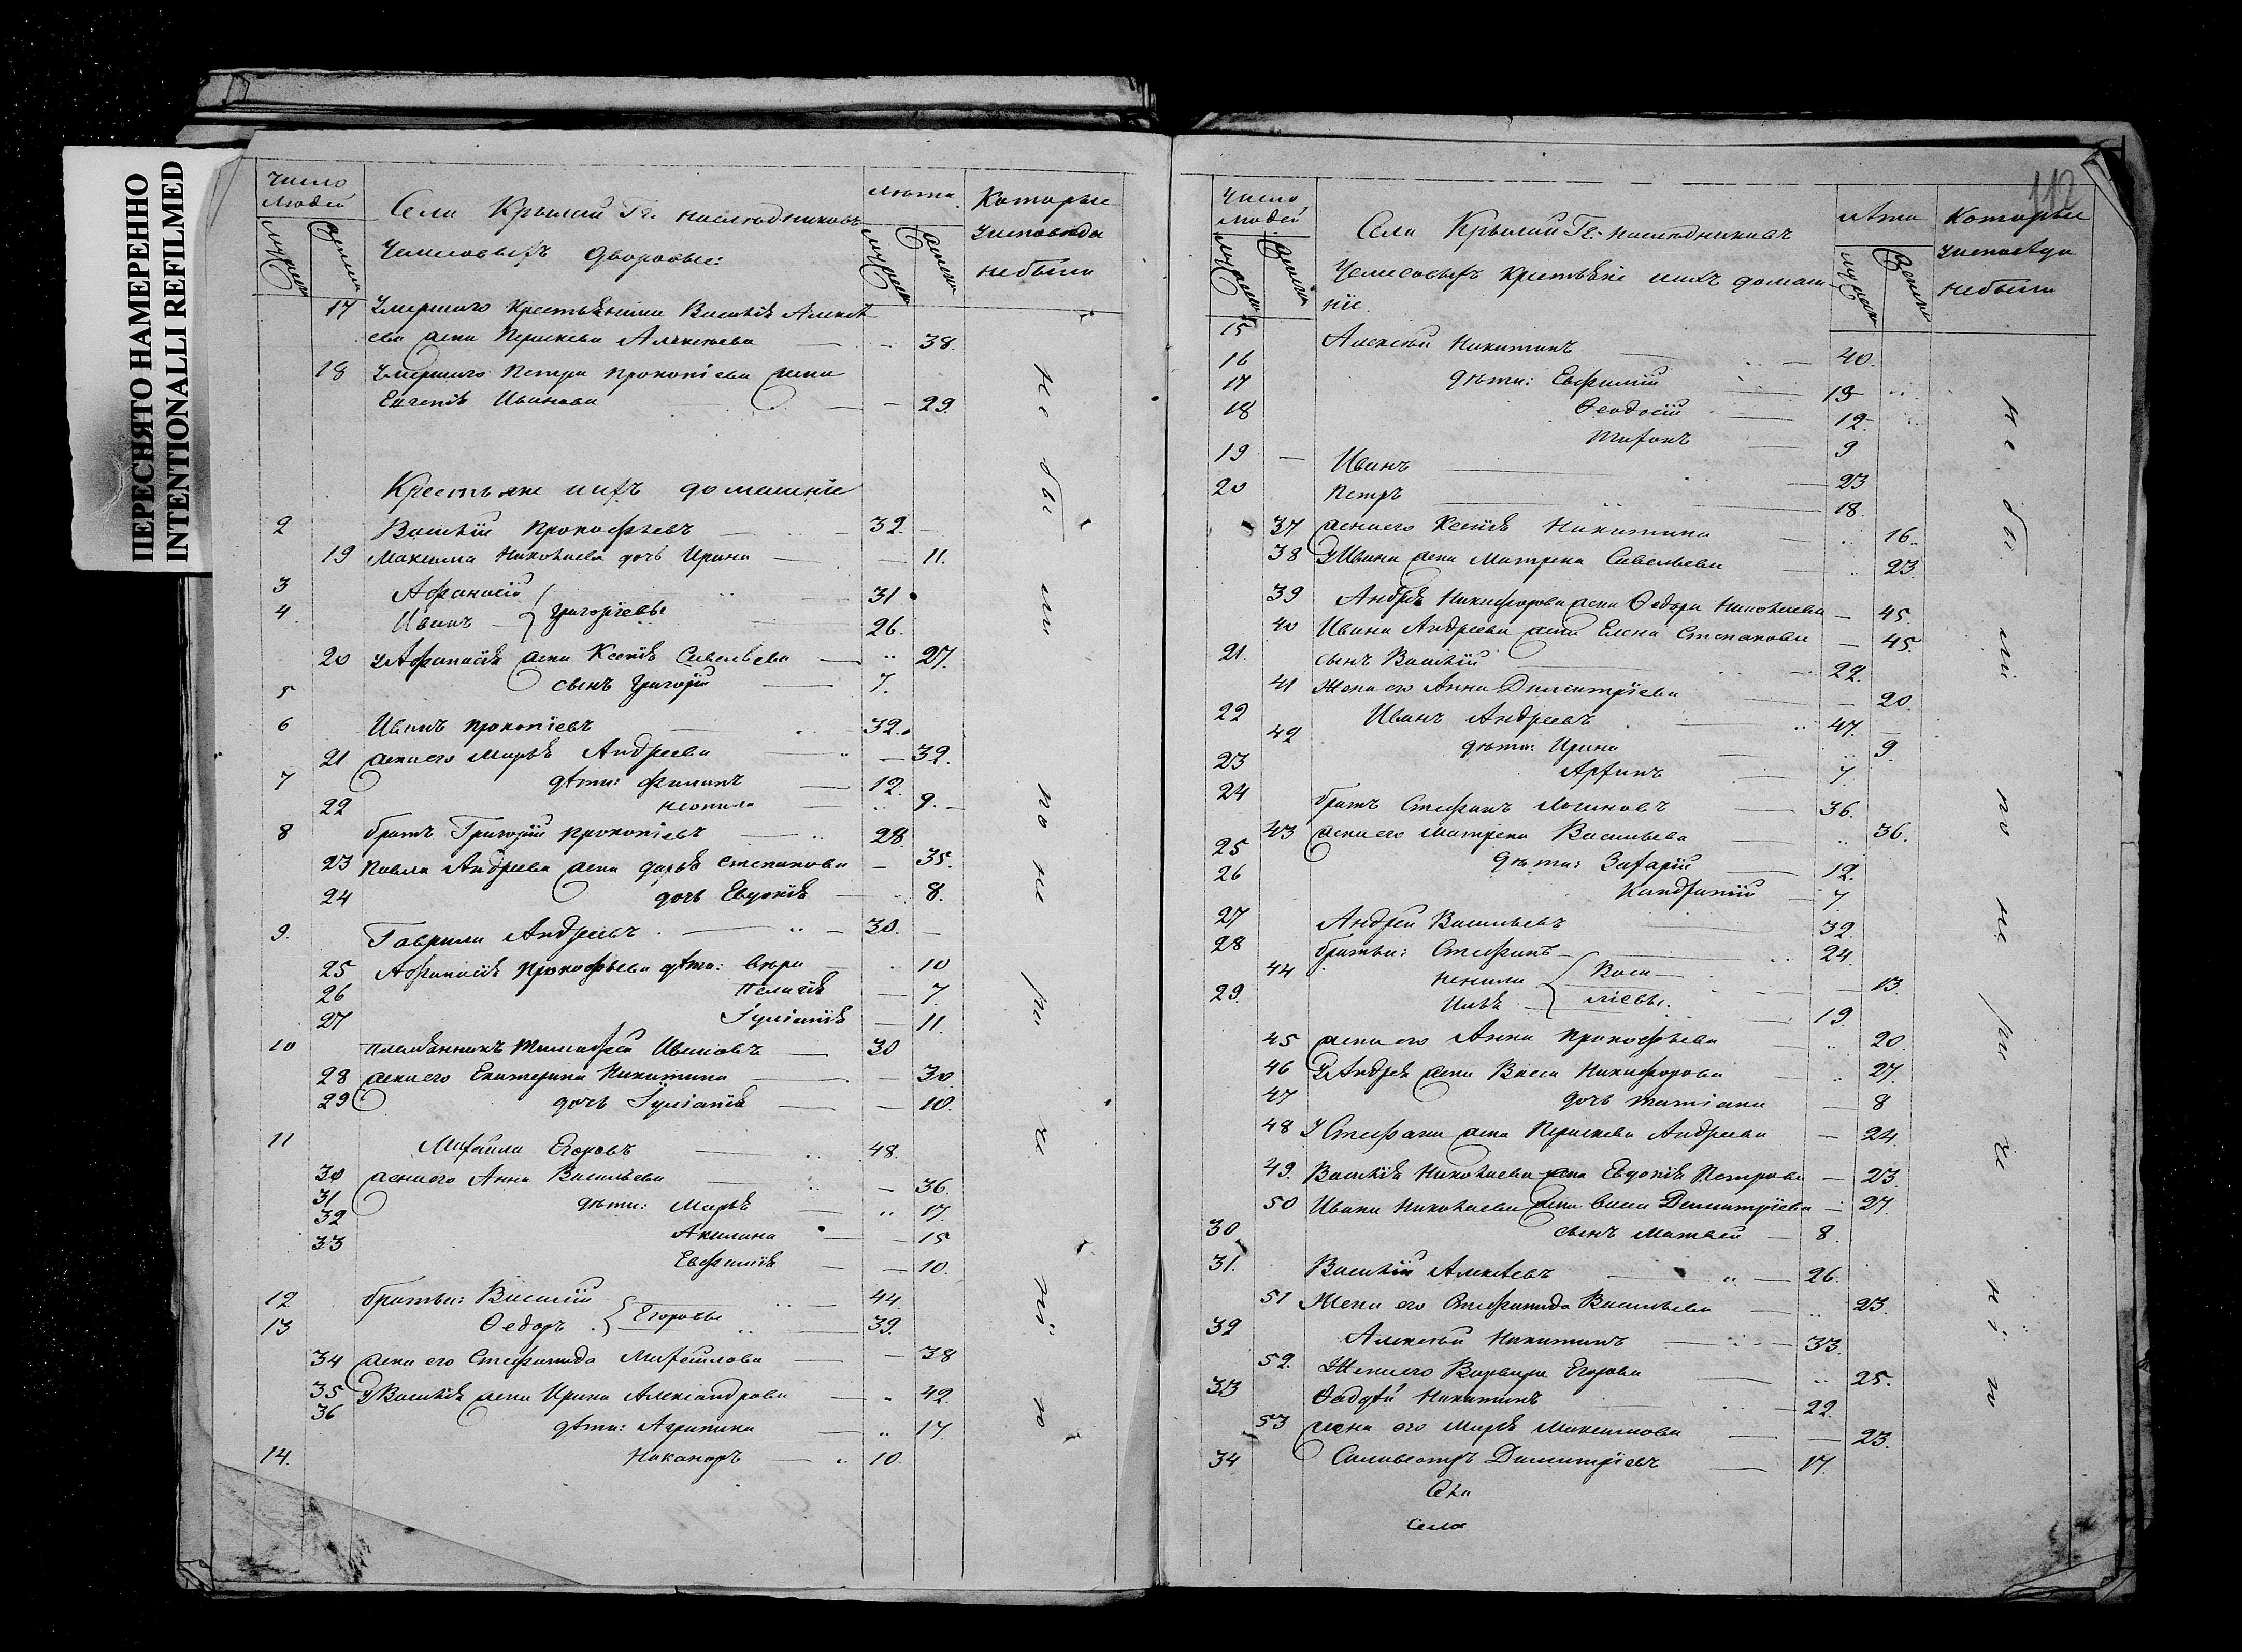 ПЕРЕСНЯТО НАМЕРЕННО
INTENTIONALLI REFILMED
Число людей
мужеск
женск
Села Крылай Гг. наследниковъ
дворовые:
лета
мужеск
женск
Которые
исповеди
небыли
17 Умершаго крестьянина Василія Алексе
ева жена Парасковья Алексеева — 38.
18 Умершаго Петра Прокопіева жена
Евгенія Иванова — 29.
Крестьяне ихъ домашніе
2 Василій Прокофьевъ — 32.
19 Максима Николаева дочь Ирина — 11.
3 Афанасій
31
4. Иванъ Григорьевы
26.
20 У Афанасія жена Ксенія Савельева — 27.
5 сынъ Григорій — 7.
6 Иванъ Прокопіевъ 32.
21 жена его Марья Андреева — 32.
7 дети: Филипъ — 12.
22 9.
8 братъ Григорій Прокопіевъ — 28.
23 Павла Андреева жена Дарья Степанова — 35.
24 дочь Евдокія — 8.
9. Гаврила Андреевъ — 30.
25 Афанасія Прокофьева дети: Вера — 10
26 Пелагія — 7.
27 Іуліанія — 11.
10 племянникъ Тимофей Ивановъ — 30
28 жена его Екатерина Никитина — 30.
29 дочь Іуліанія — 10.
11 Михайла Егоровъ — 48.
30 жена его Анна Васильева — 36.
31 дети: Марья — 17.
32 Акилина — 15
33 Евфимія — 10.
12 братья: Василій — 44.
13 Федоръ Егоровы — 39.
34 жена его Стефанида Михайлова — 38
35 У Василія жена Ирина Александрова — 42.
36 дети: Агрипина — 17
14. Никаноръ — 10
не были по не ра че нію
112
Число людей
мужеск
женск
Села Крылай Гг. наследниковъ
крестьяне ихъ домаш
ніе.
лета
мужеск
женск
Которые
исповеди
небыли
15 Алексей Никитинъ — 40.
16 дети: Евфимій — 15
17 Феодосій — 12.
18 Тихонъ — 9
19 — Иванъ — 23
20 Петръ — 18.
37 жена его Ксенія Никитина — 16.
38 У Ивана жена Матрена Савельева — 23.
39 Андрея Никифорова жена Федора Николаева — 45.
40 Ивана Андреева жена Елена Степанова — 45.
21. сынъ Василій — 22.
41 Жена его Анна Димитріева — 20.
22 Иванъ Андреевъ — 47.
42 дети: Ирина — 9.
23 Архипъ — 7.
24 братъ Стефанъ Логиновъ — 36.
43 жена его Матрена Васильева — 36.
25 дети: Захарій — 12.
26 Кандратій — 7
27 Андрей Васильевъ — 32.
28 братья: Стефанъ — 24.
44 Ненила Васи — 13.
29. Илья льевы. — 19.
45 жена его Анна Прокофьева — 20.
46 У Андрея жена Васса Никифорова — 27.
47 дочь Татіана — 8
48 У Стефана жена Парасковья Андреева — 24.
49. Василія Николаева жена Евдокія Петрова — 23.
50 Ивана Николаева жена Васса Димитріева — 27.
30 сынъ Матвей — 8.
31. Василій Алексеевъ — 26.
51 Жена его Стефанида Васильева — 23.
32 Алексей Никитинъ — 33.
52. Жена его Варвара Егорова — 25.
33 Фаддей Никитинъ — 22.
53 жена его Марья Максимова — 23.
34 Силивестръ Димитріевъ — 17.
Села
не бы ли по не ра че нію